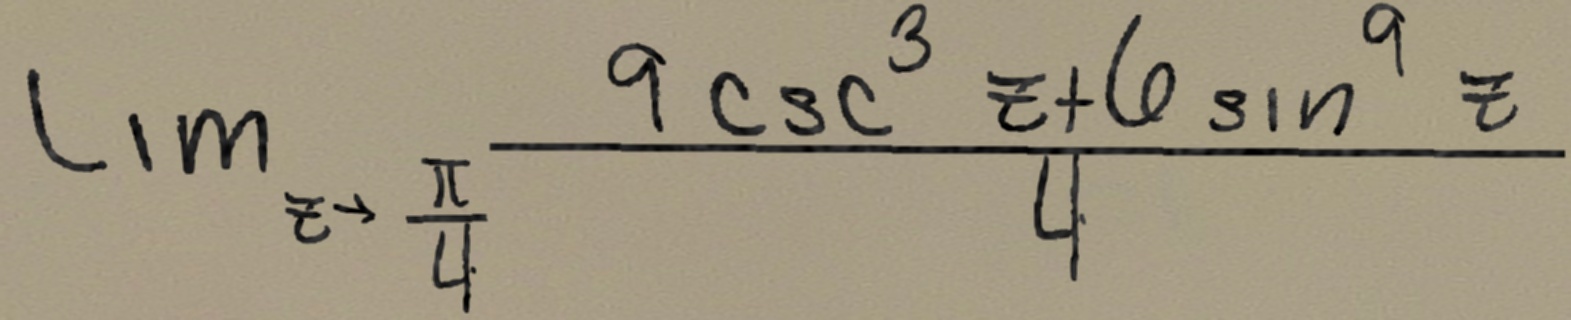 \lim_{z \to \frac{\pi}{4}} \frac{9 \csc^3 z + 6 \sin^9 z}{4}